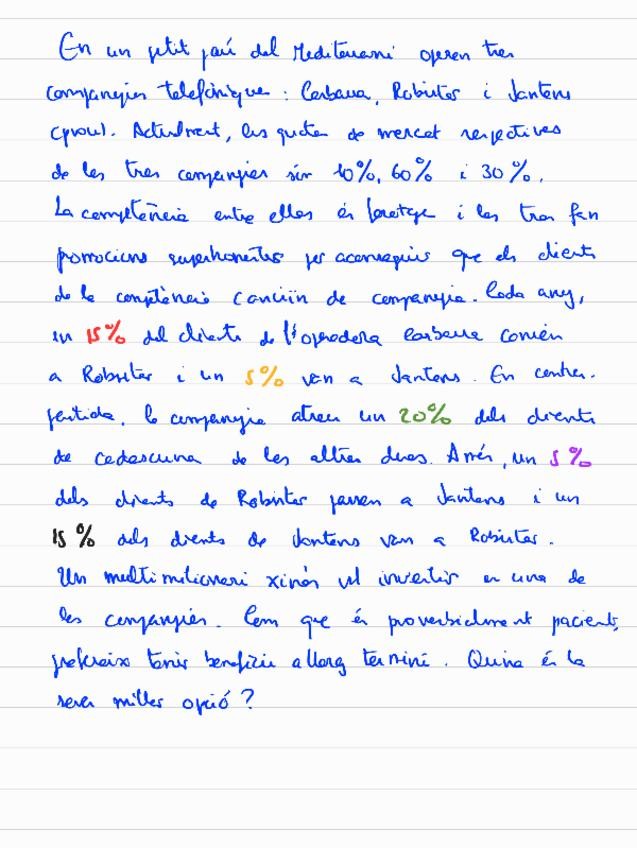 En un petit país del Mediterrani operen tres
companyies telefòniques: Carbassa, Robustes i Jantens
(prou). Actualment, les quotes de mercat respectives
de les tres companyies són 10%, 60% i 30%.
La competència entre elles és ferotge i les tres fan
promocions per aconseguir que els clients
de la competència canviïn de companyia. Cada any,
un 15% dels clients de l'operadora Carbassa canvien
a Robustes i un 5% van a Jantens. En contra-
partida, la companyia atreu un 20% dels clients
de cadascuna de les altres dues. A més, un 5%
dels clients de Robustes passen a Jantens i un
15% dels clients de Jantens van a Robustes.
Un multimilionari xinès vol invertir en una de
les companyies. Com que és proverbialment pacient,
prefereix tenir beneficis a llarg termini. Quina és la
seva millor opció?